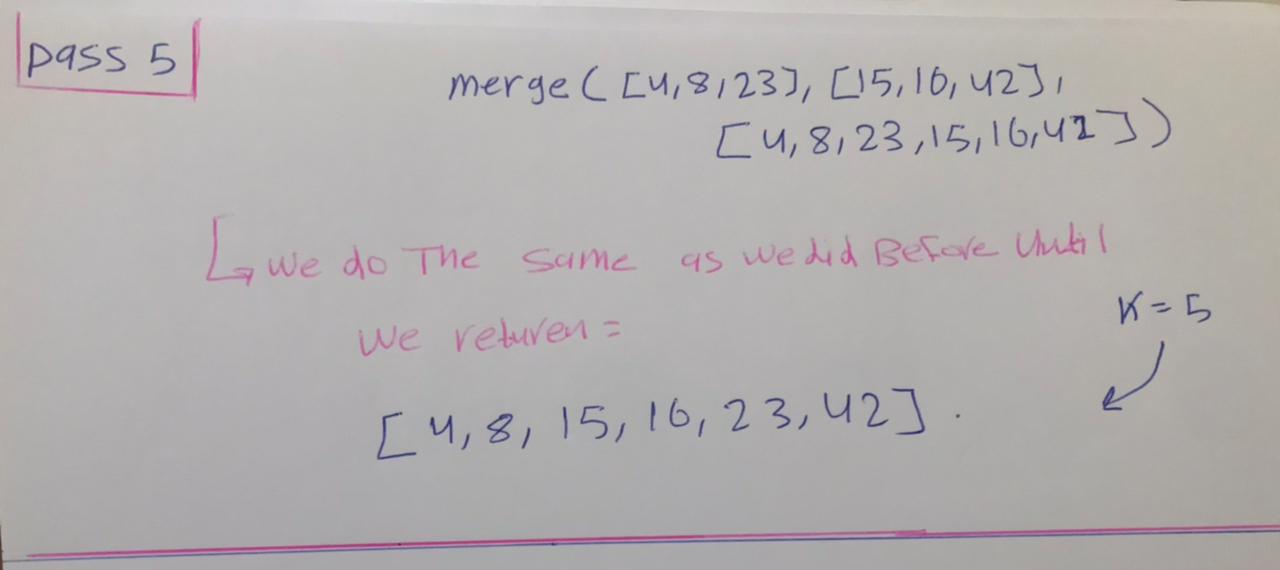 pass 5
merge([4,8,23],[15,16,42],
[4,8,23,15,16,42])
we do The same as we did Before Until
we returen =
K = 5
[4,8,15,16,23,42].